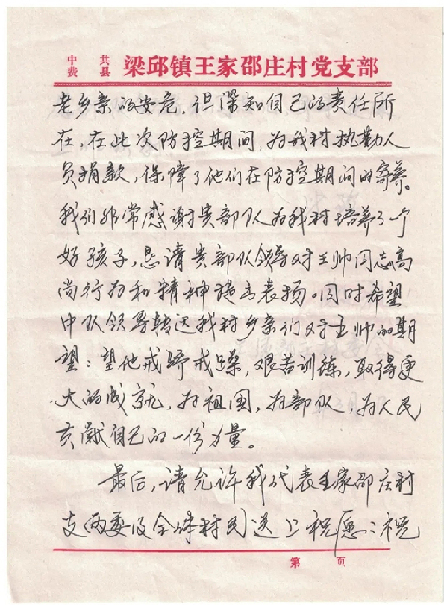 中共费县 梁邱镇王家邵庄村党支部
老乡亲的安危，但深知自己的责任所
在，在此次防控期间为我村执勤人
员捐款，保障了他们在防控期间的营养。
我们非常感谢贵部队为我村培养了一个
好孩子，恳请贵部队领导对王帅同志高
尚行为和精神提出表扬。同时希望
中队领导转达我村乡亲们对王帅的期
望：望他戒骄戒躁，艰苦训练，取得更
大的成就，为祖国，为部队，为人民
贡献自己的一份力量。
最后，请允许我代表王家邵庄村
支两委及全体村民送上祝愿：祝
第 页